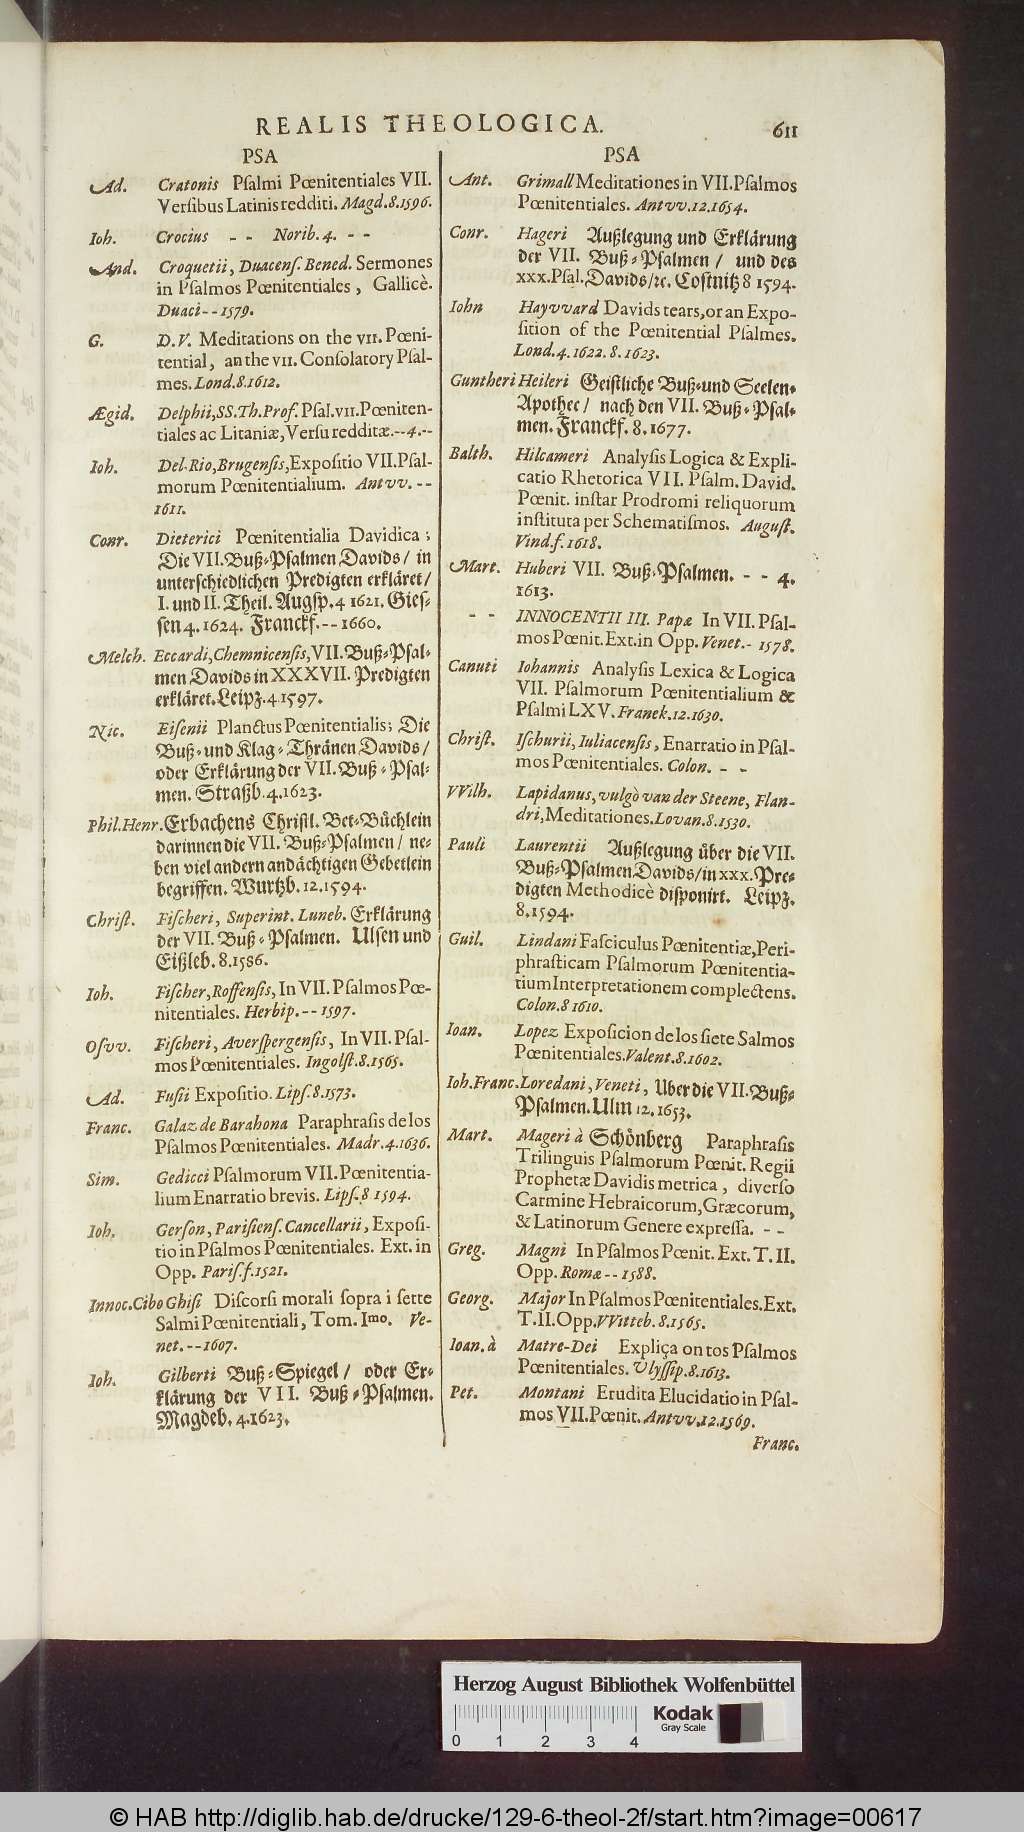 REALIS THEOLOGICA. 611
PSA
Ad. Cratonis Pſalmi Pœnitentiales VII.
Verſibus Latinis redditi. Magd. 8. 1596.
Ioh. Crocius - - Norib. 4. - -
And. Croquetii, Duacenſ. Bened. Sermones
in Pſalmos Pœnitentiales, Gallicè.
Duaci - - 1579.
G. D. V. Meditations on the VII. Pœni-
tential, an the VII. Conſolatory Pſal-
mes. Lond. 8. 1612.
Ægid. Delphii, SS. Th. Prof. Pſal. VII. Pœniten-
tiales ac Litaniæ, Verſu redditæ. -- 4. --
Ioh. Del-Rio, Brugenſis, Expoſitio VII. Pſal-
morum Pœnitentialium. Antvv. --
1611.
Conr. Dieterici Pœnitentialia Davidica;
Die VII. Buß-Pſalmen Davids/ in
unterſchiedlichen Predigten erkläret/
I. und II. Theil. Augſp. 4 1621. Gieſ-
ſen 4. 1624. Franckf. -- 1660.
Melch. Eccardi, Chemnicenſis, VII. Buß-Pſal-
men Davids in XXXVII. Predigten
erkläret. Leipz. 4 1597.
Nic. Eiſenii Planctus Pœnitentialis; Die
Buß- und Klag-Thränen Davids/
oder Erklärung der VII. Buß-Pſal-
men. Straßb. 4. 1623.
Phil. Henr. Erbachens Chriſtl. Bet-Büchlein
darinnen die VII. Buß-Pſalmen/ ne-
ben viel andern andächtigen Gebetlein
begriffen. Wurtzb. 12. 1594.
Chriſt. Fiſcheri, Superint. Luneb. Erklärung
der VII. Buß-Pſalmen. Ulſen und
Eißleb. 8. 1586.
Ioh. Fiſcher, Roffenſis, In VII. Pſalmos Pœ-
nitentiales. Herbip. -- 1597.
Oſvv. Fiſcheri, Averſpergenſis, In VII. Pſal-
mos Pœnitentiales. Ingolſt. 8. 1565.
Ad. Fuſii Expoſitio. Lipſ. 8. 1573.
Franc. Galaz de Barahona Paraphraſis de los
Pſalmos Pœnitentiales. Madr. 4. 1636.
Sim. Gedicci Pſalmorum VII. Pœnitentia-
lium Enarratio brevis. Lipſ. 8 1594.
Ioh. Gerſon, Pariſienſ. Cancellarii, Expoſi-
tio in Pſalmos Pœnitentiales. Ext. in
Opp. Pariſ. f. 1521.
Innoc. Cibo Ghiſi Diſcorſi morali ſopra i ſette
Salmi Pœnitentiali, Tom. Imo. Ve-
net. -- 1607.
Ioh. Gilberti Buß-Spiegel/ oder Er-
klärung der VII. Buß-Pſalmen.
Magdeb. 4. 1623.
PSA
Ant. Grimall Meditationes in VII. Pſalmos
Pœnitentiales. Antvv. 12. 1654.
Conr. Hageri Außlegung und Erklärung
der VII. Buß-Pſalmen/ und des
XXX. Pſal. Davids/ ꝛc. Coſtnitz 8 1594.
Iohn Hayvvard Davids tears, or an Expo-
ſition of the Pœnitential Pſalmes.
Lond. 4. 1622. 8. 1623.
Guntheri Heileri Geiſtliche Buß- und Seelen-
Apothec/ nach den VII. Buß-Pſal-
men. Franckf. 8. 1677.
Balth. Hilcameri Analyſis Logica & Expli-
catio Rhetorica VII. Pſalm. David.
Pœnit. inſtar Prodromi reliquorum
inſtituta per Schematiſmos. Auguſt.
Vind. f. 1618.
Mart. Huberi VII. Buß-Pſalmen. - - 4.
1613.
- - INNOCENTII III. Papæ In VII. Pſal-
mos Pœnit. Ext. in Opp. Venet. - 1578.
Canuti Iohannis Analyſis Lexica & Logica
VII. Pſalmorum Pœnitentialium &
Pſalmi LXV. Franek. 12. 1630.
Chriſt. Iſchurii, Iuliacenſis, Enarratio in Pſal-
mos Pœnitentiales. Colon. - -
VVilh. Lapidanus, vulgò van der Steene, Flan-
dri, Meditationes. Lovan. 8. 1530.
Pauli Laurentii Außlegung über die VII.
Buß-Pſalmen Davids/ in XXX. Pre-
digten Methodicè diſponirt. Leipz.
8. 1594.
Guil. Lindani Faſciculus Pœnitentiæ, Peri-
phraſticam Pſalmorum Pœnitentia-
tium Interpretationem complectens.
Colon. 8 1610.
Ioan. Lopez Expoſicion de los ſiete Salmos
Pœnitentiales. Valent. 8. 1602.
Ioh. Franc. Loredani, Veneti, Uber die VII. Buß-
Pſalmen. Ulm 12. 1653.
Mart. Mageri à Schönberg Paraphraſis
Trilinguis Pſalmorum Pœnit. Regii
Prophetæ Davidis metrica, diverſo
Carmine Hebraicorum, Græcorum,
& Latinorum Genere expreſſa. - -
Greg. Magni In Pſalmos Pœnit. Ext. T. II.
Opp. Romæ -- 1588.
Georg. Major In Pſalmos Pœnitentiales. Ext.
T. II. Opp. VVitteb. 8. 1565.
Ioan. à Matre-Dei Expliça on tos Pſalmos
Pœnitentiales. Ulyſſip. 8. 1613.
Pet. Montani Erudita Elucidatio in Pſal-
mos VII. Pœnit. Antvv. 12. 1569.
Franc.
Herzog August Bibliothek Wolfenbüttel
0 1 2 3 4
Kodak
Gray Scale
© HAB http://diglib.hab.de/drucke/129-6-theol-2f/start.htm?image=00617